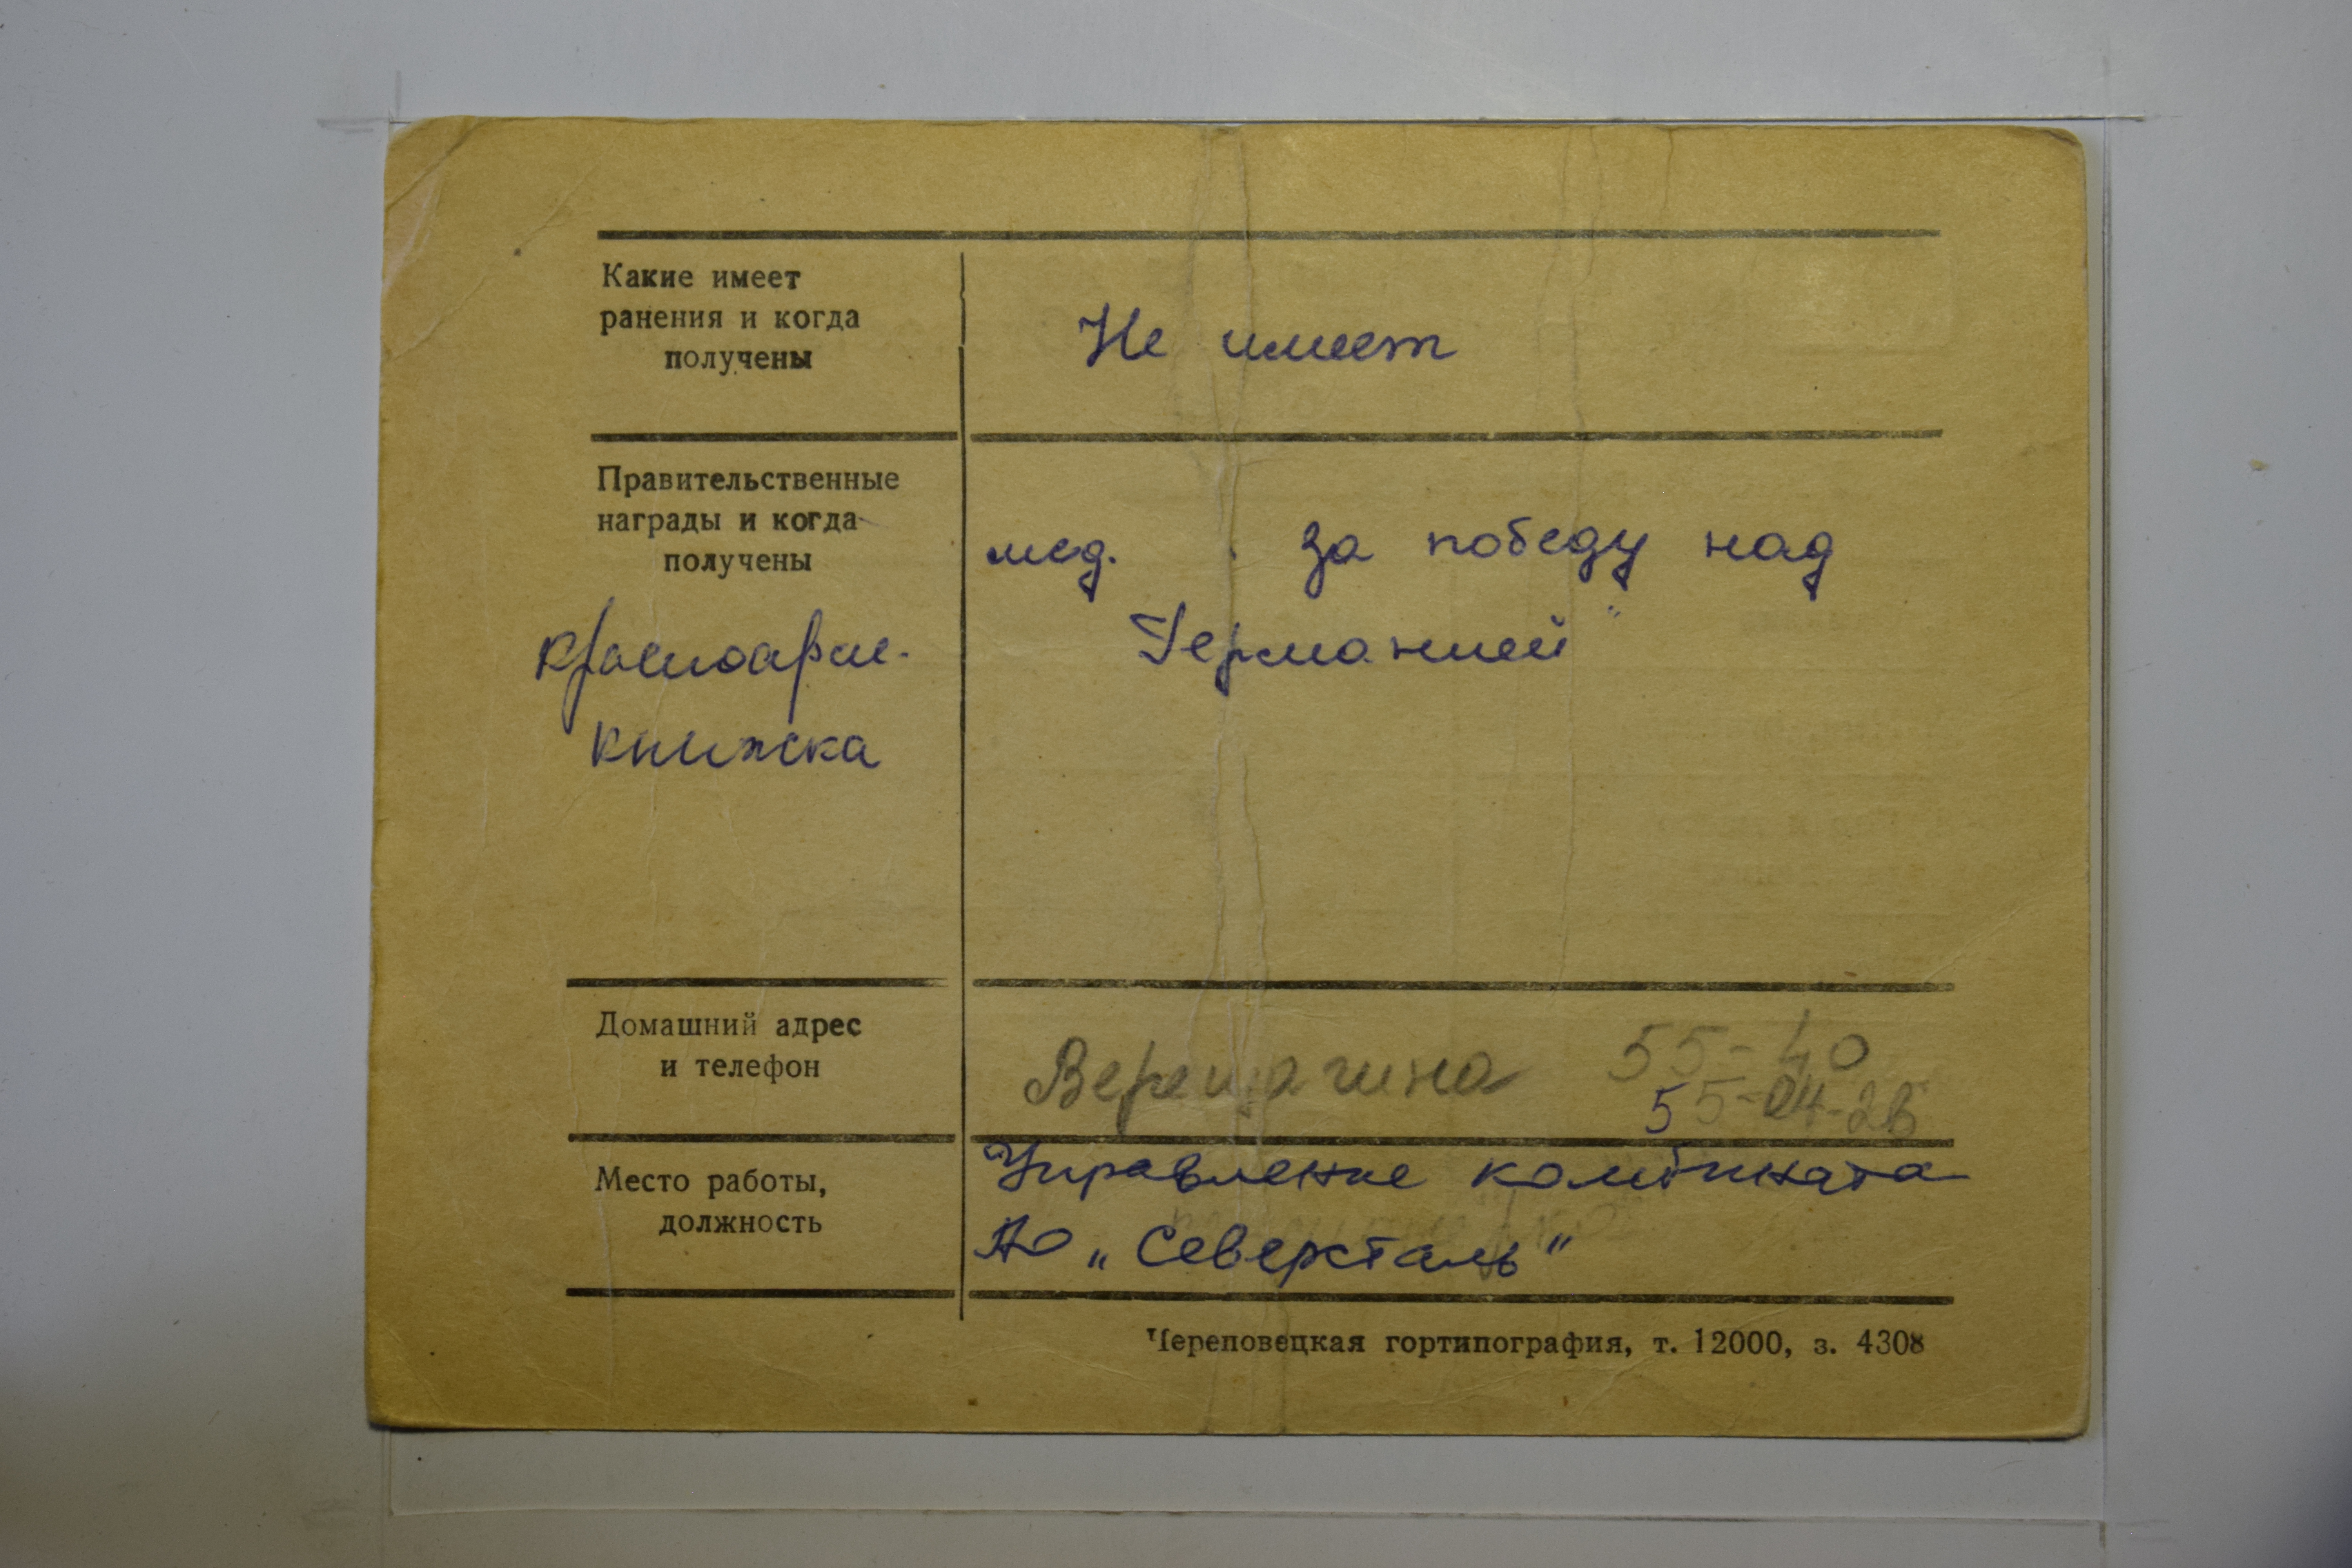 Какие имеет
ранения и когда
получены
Не имеет
Правительственные
награды и когда
получены
мед. за победу над
Германией"
красноарм.
книжка
Домашний адрес
и телефон
Верещагина 55-40
55-04-26
Место работы,
должность
Управление комбината
АО „Северсталь"
Череповецкая гортипография, т. 12000, з. 4308